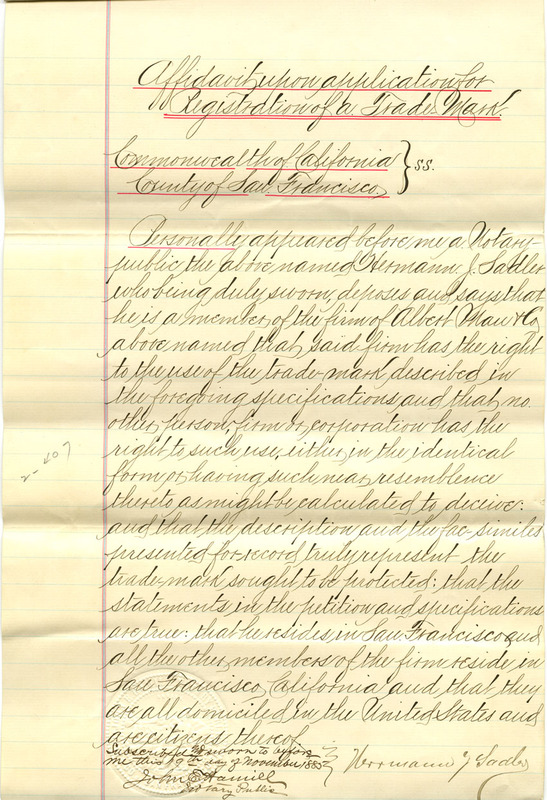 Affidavit upon application for
Registration of a Trade Mark.
Commonwealth of California
County of San Francisco } ss.
Personally appeared before me a Notary-
public the above named Hermann J. Sadler
who being duly sworn, deposes and says that
he is a member of the firm of Albert Mau & Co
above named that said firm has the right
to the use of the trade-mark described in
the foregoing specifications and that no
other person, firm or corporation has the
right to such use either in the identical
form or having such near resemblence
thereto as might be calculated to deceive:
and that the description and the fac-similes
presented for record truly represent the
trade-mark sought to be protected: that the
statements in the petition and specifications
are true: that he resides in San Francisco and
all the other members of the firm reside in
San Francisco California and that they
are all domiciled in the United States and
are citizens thereof
Subscribed & sworn to before
me this 19th day of November 1883
John E Hamill
Notary Public
Herrmann J Sadler
2-407